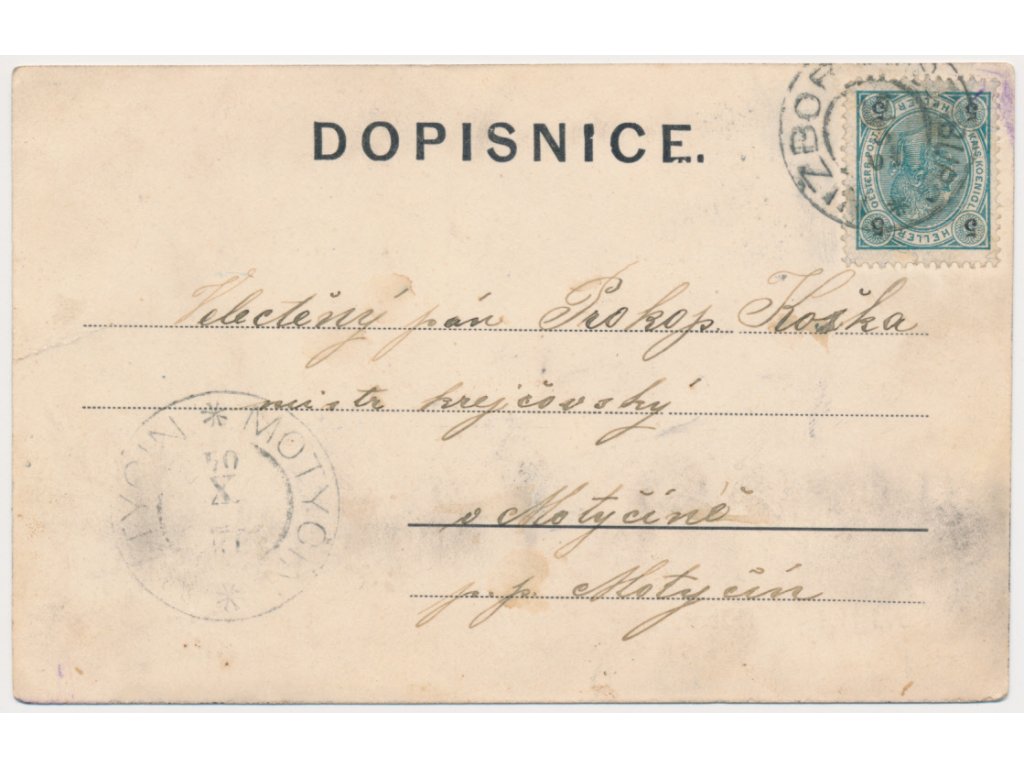 DOPISNICE.
Velectěný pán Prokop. Koška
mistr krejčovský
v Motyčíně
p. p. Motyčín
MOTYČIN * MOTYČIN *
X
04
ZBOR
KAIS. KOENIGL. OESTERR. POST.
5 HELLER 5
5 HELLER 5